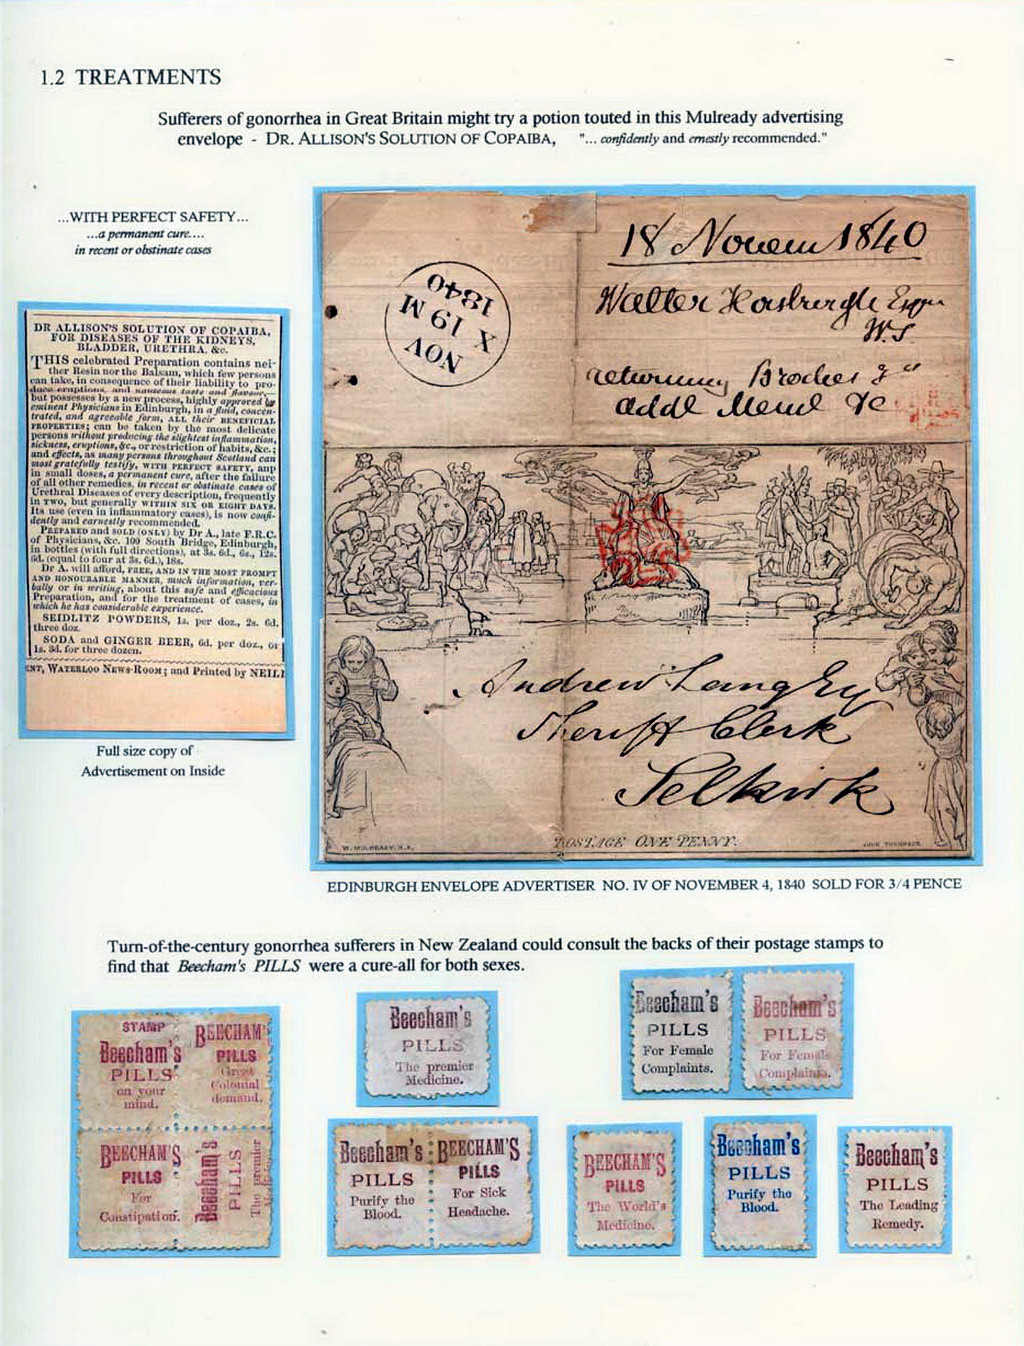 1.2 TREATMENTS
Sufferers of gonorrhea in Great Britain might try a potion touted in this Mulready advertising
envelope - DR. ALLISON'S SOLUTION OF COPAIBA, "... confidently and ernestly recommended."
...WITH PERFECT SAFETY...
...a permanent cure....
in recent or obstinate cases
DR ALLISON'S SOLUTION OF COPAIBA,
FOR DISEASES OF THE KIDNEYS,
BLADDER, URETHRA, &c.
THIS celebrated Preparation contains nei-
ther Resin nor the Balsam, which few persons
can take, in consequence of their liability to pro-
duce eruptions, and nauseous taste and flavour,—
but possesses by a new process, highly approved by
eminent Physicians in Edinburgh, in a fluid, concen-
trated, and agreeable form, ALL their BENEFICIAL
PROPERTIES; can be taken by the most delicate
persons without producing the slightest inflammation,
sickness, eruptions, &c., or restriction of habits, &c.;
and effects, as many persons throughout Scotland can
most gratefully testify, WITH PERFECT SAFETY, anp
in small doses, a permanent cure, after the failure
of all other remedies, in recent or obstinate cases of
Urethral Diseases of every description, frequently
in TWO, but generally WITHIN SIX OR EIGHT DAYS.
Its use (even in inflammatory cases), is now confi-
dently and earnestly recommended.
PREPARED and SOLD (ONLY) by Dr A., late F.R.C.
of Physicians, &c. 109 South Bridge, Edinburgh,
in bottles (with full directions), at 3s. 6d., 6s., 12s.
6d. (equal to four at 3s. 6d.), 18s.
Dr A. will afford, FREE, AND IN THE MOST PROMPT
AND HONOURABLE MANNER, much information, ver-
bally or in writing, about this safe and efficacious
Preparation, and for the treatment of cases, in
which he has considerable experience.
SEIDLITZ POWDERS, 1s. per doz., 2s. 6d.
three doz.
SODA and GINGER BEER, 6d. per doz., or
1s. 3d. for three dozen.
ENT, WATERLOO NEWS-ROOM; and Printed by NEILL
Full size copy of
Advertisement on Inside
18 Novem 1840
Walter Esqr
W.S
returning
addl &c
NOV
X 19 M
1840
Andrew Lang Esq
Sheriff Clerk
Selkirk
POSTAGE ONE PENNY.
W. MULREADY, R.A.
JOHN THOMPSON
EDINBURGH ENVELOPE ADVERTISER NO. IV OF NOVEMBER 4, 1840 SOLD FOR 3/4 PENCE
Turn-of-the-century gonorrhea sufferers in New Zealand could consult the backs of their postage stamps to
find that Beecham's PILLS were a cure-all for both sexes.
STAMP
Beecham's
PILLS
on your
mind.
BEECHAM'
PILLS
Great
Colonial
demand.
BEECHAM'S
PILLS
For
Constipation.
Beecham's
PILLS
The premier
Beecham's
PILLS
The premier
Medicine.
Beecham's
PILLS
For Female
Complaints.
Beecham's
PILLS
For Female
Complaints.
Beecham's
PILLS
Purify the
Blood.
BEECHAM'S
PILLS
For Sick
Headache.
BEECHAM'S
PILLS
The World's
Medicine.
Beecham's
PILLS
Purify the
Blood.
Beecham's
PILLS
The Leading
Remedy.